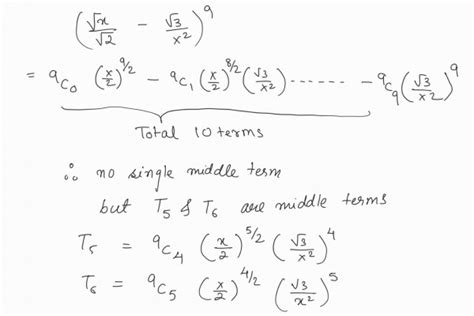 (√x/√2 − √3/x²)⁹
= ⁹C₀ (x/2)^9/2 − ⁹C₁ (x/2)^8/2 (√3/x²) ...... − ⁹C₉ (√3/x²)⁹
Total 10 terms
∴ no single middle term
but T₅ & T₆ are middle terms
T₅ = ⁹C₄ (x/2)^5/2 (√3/x²)⁴
T₆ = ⁹C₅ (x/2)^4/2 (√3/x²)⁵